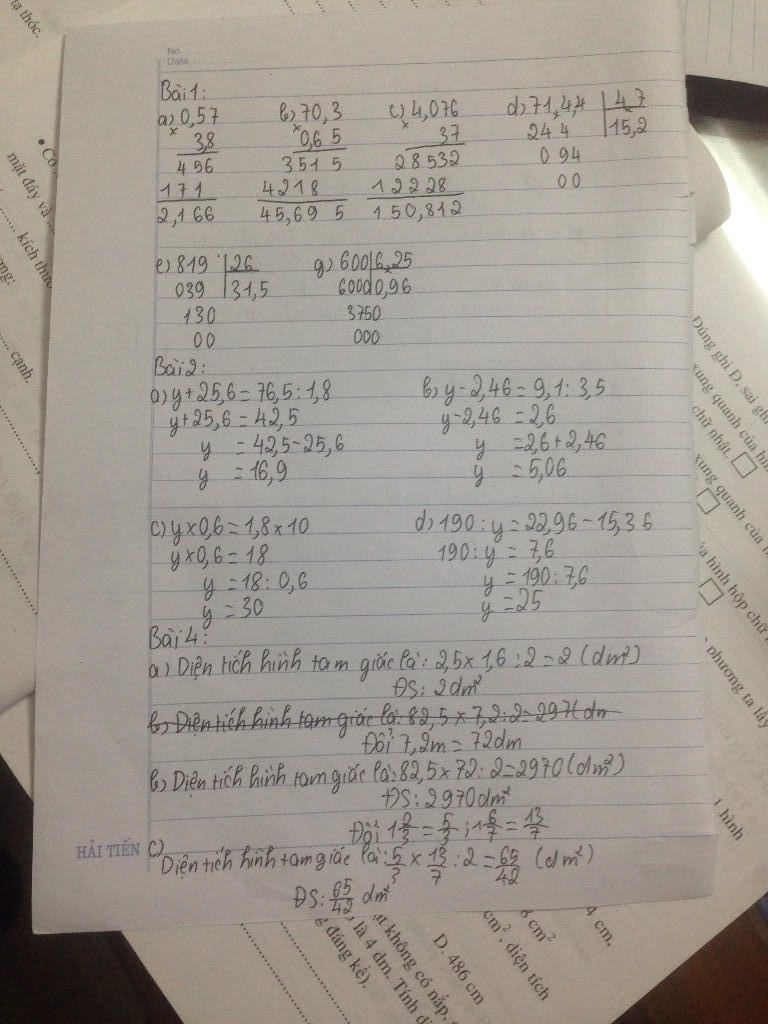 ta thóc.
No.
Date
Bài 1:
a) 0,57 b) 70,3 c) 4,076 d) 71,4,4 4,7
x 3,8 x 0,6 5 x 37 24 4 15,2
4 5 6 3 5 1 5 2 8 5 3 2 0 9 4
1 7 1 4 2 1 8 1 2 2 2 8 0 0
2,1 6 6 4 5,6 9 5 1 5 0,8 1 2
e) 819 26 g) 600 6,25
039 31,5 6000 0,96
130 3750
00 000
Bài 2:
a) y + 25,6 = 76,5 : 1,8 b) y - 2,46 = 9,1 : 3,5
y + 25,6 = 42,5 y - 2,46 = 2,6
y = 42,5 - 25,6 y = 2,6 + 2,46
y = 16,9 y = 5,06
c) y x 0,6 = 1,8 x 10 d) 190 : y = 22,96 - 15,36
y x 0,6 = 18 190 : y = 7,6
y = 18 : 0,6 y = 190 : 7,6
y = 30 y = 25
Bài 4:
a) Diện tích hình tam giác là: 2,5 x 1,6 : 2 = 2 (dm²)
ĐS: 2dm²
b) Diện tích hình tam giác là: 82,5 x 7,2 : 2 = 297(dm
Đổi 7,2m = 72dm
b) Diện tích hình tam giác là: 82,5 x 72 : 2 = 2970 (dm²)
ĐS: 2970dm²
Đổi 1 2/3 = 5/3 ; 1 6/7 = 13/7
HẢI TIẾN
c) Diện tích hình tam giác là: 5/3 x 13/7 : 2 = 65/42 (dm²)
ĐS: 65/42 dm²
mặt đáy và
kích thư
cạnh.
Đúng ghi Đ, sai ghi
xung quanh của hì
chữ nhật
xung quanh của h
hình hộp chữ
phương ta lấy
hình
4 cm,
cm²
cm², diện tích
D. 486 cm
không có nắp,
là 4 dm. Tính d
đáng kể).